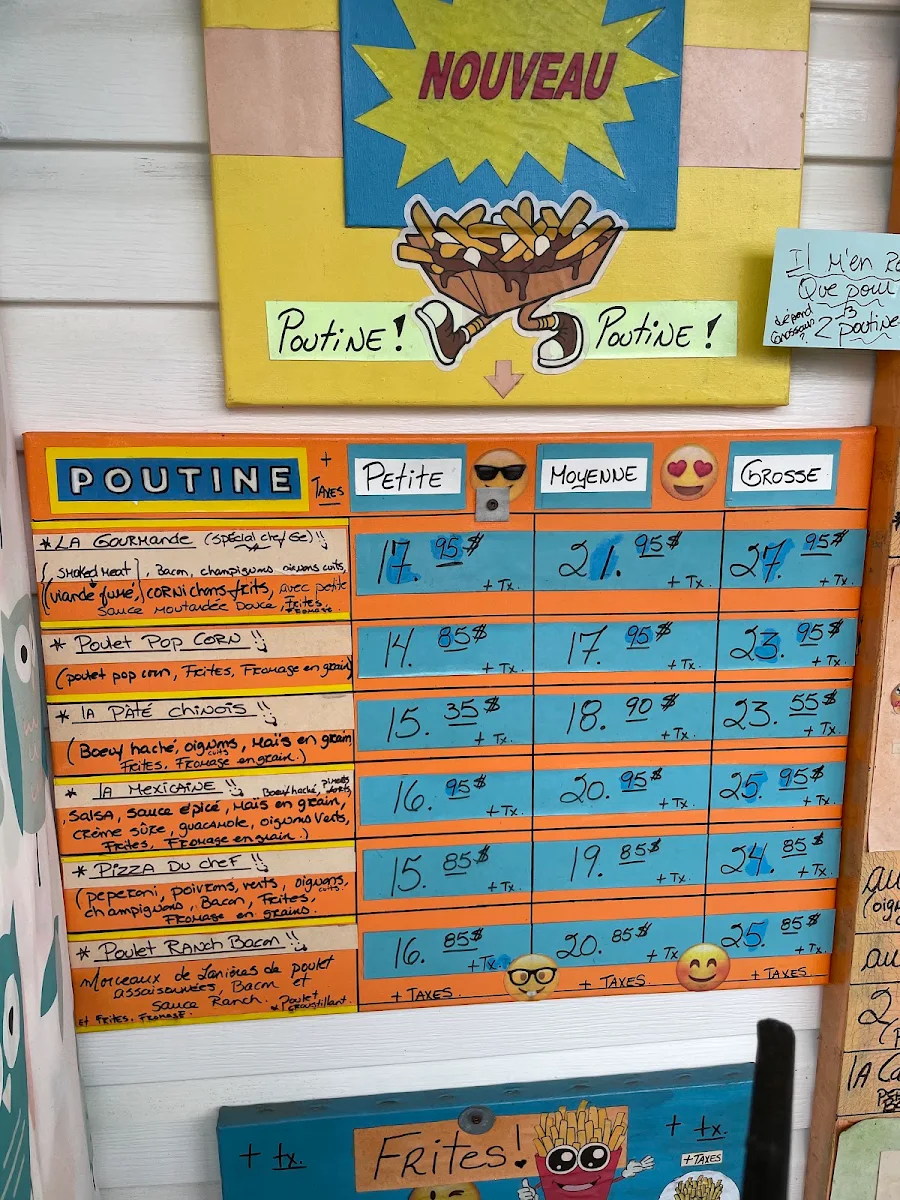 NOUVEAU
Poutine! Poutine!
Il m'en
Que pour
dépend
Grosseur
? 2 poutine
POUTINE + TAXES Petite Moyenne Grosse
* La Gourmande (spécial chef Ge)!!
(Smoked Meat), Bacon, champignons, oignons cuits,
(viande fumé,) cornichons frits, avec petite
sauce moutardée Douce, Frites,
Fromage
17.95$ + Tx. 21.95$ + Tx. 27.95$ + Tx.
* Poulet Pop Corn!!
(poulet pop corn, Frites, Fromage en grain)
14.85$ + Tx. 17.95$ + Tx. 23.95$ + Tx.
* la Pâté chinois!!
(Boeuf haché, oignons cuits, Maïs en grain
Frites, Fromage en grain.)
15.35$ + Tx. 18.90$ + Tx. 23.55$ + Tx.
* la Mexicaine!! Boeuf haché, piments forts,
Salsa, sauce épicé, Maïs en grain,
crème sûre, guacamole, oignons verts,
Frites, Fromage en grain.)
16.95$ + Tx. 20.95$ + Tx. 25.95$ + Tx.
* Pizza Du chef!!
(peperoni, poivrons, verts, oignons, cuits
champignons, Bacon, Frites,
Fromage en grains.
15.85$ + Tx. 19.85$ + Tx. 24.85$ + Tx.
* Poulet Ranch Bacon!!
Morceaux de Lanières de poulet
assaisonnées, Bacon et
Sauce Ranch.
et Frites, Fromage. * Poulet croustillant.
16.85$ + Tx. 20.85$ 25.85$ + Tx.
+ TAXES + TAXES + TAXES
+ tx. Frites! + tx.
+ TAXES
au
(oig
au
2
(P
la Ca